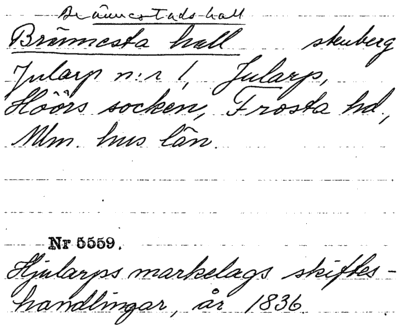 Brännestads hall
Brännesta hall skuberg
Jularp n:r 1, Jularp,
Höörs socken, Frosta hd,
Mlm. hus län.
Nr 5559.
Hjularps markelags skiftes-
handlingar, år 1836